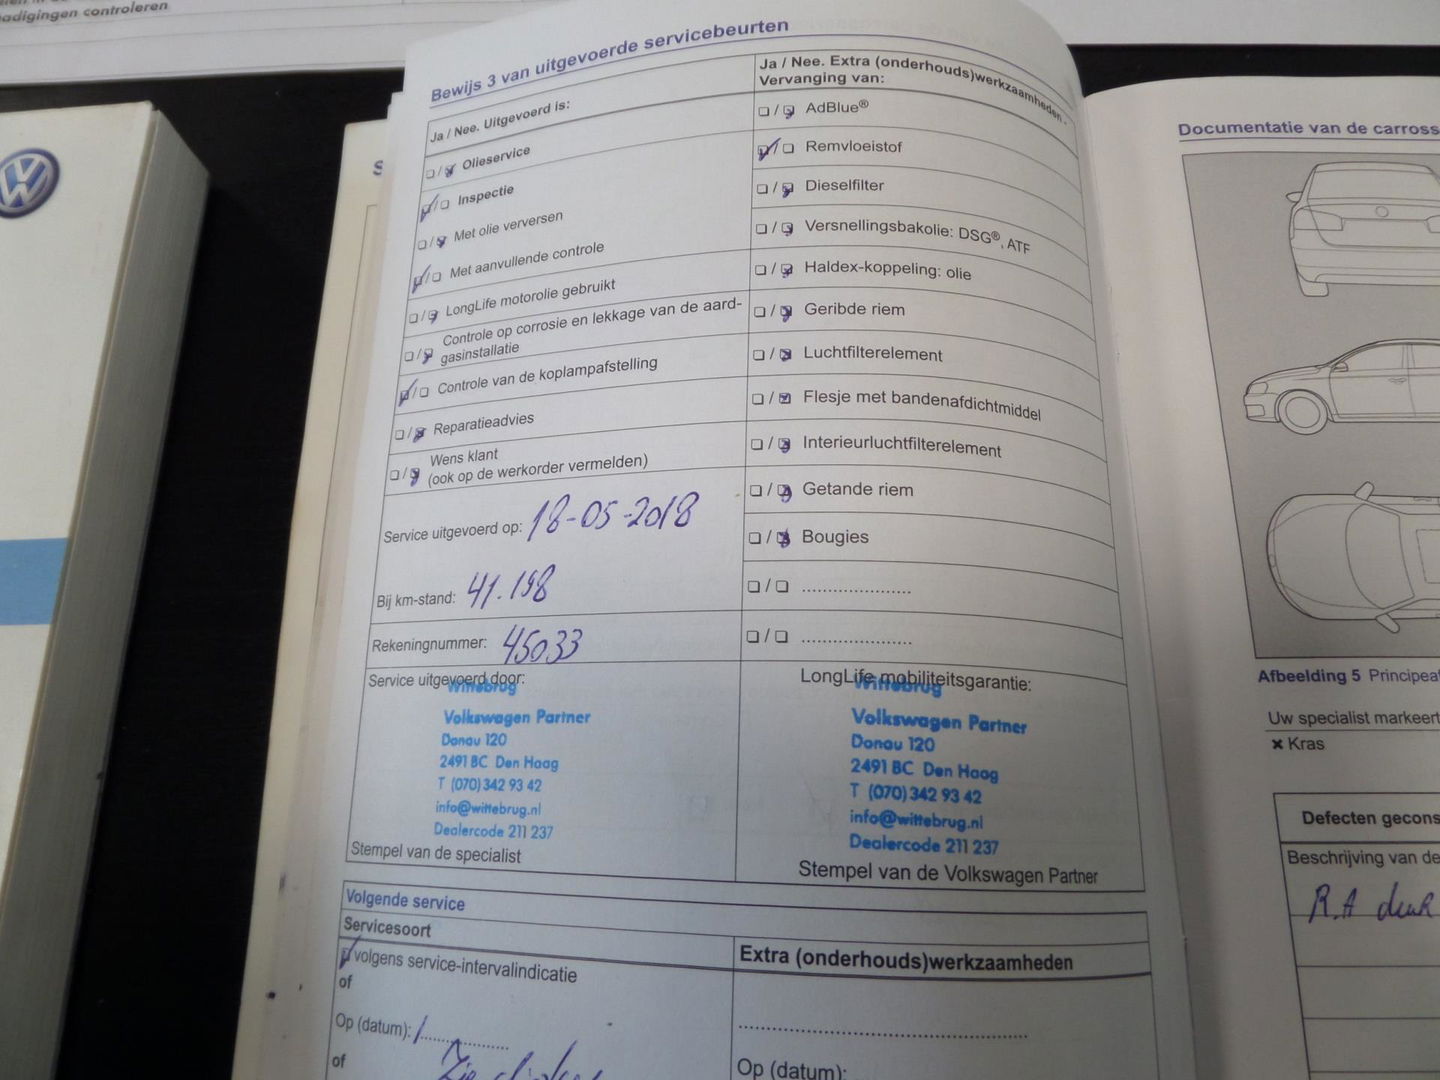 adigingen controleren
Bewijs 3 van uitgevoerde servicebeurten
Ja / Nee. Uitgevoerd is:
Olieservice
Inspectie
Met olie verversen
Met aanvullende controle
LongLife motorolie gebruikt
Controle op corrosie en lekkage van de aard-
gasinstallatie
Controle van de koplampafstelling
Reparatieadvies
Wens klant
(ook op de werkorder vermelden)
Service uitgevoerd op: 18-05-2018
Bij km-stand: 41.198
Rekeningnummer: 45033
Service uitgevoerd door:
Wittebrug
Volkswagen Partner
Donau 120
2491 BC Den Haag
T (070) 342 93 42
info@wittebrug.nl
Dealercode 211 237
Stempel van de specialist
Ja / Nee. Extra (onderhouds)werkzaamheden -
Vervanging van:
AdBlue®
Remvloeistof
Dieselfilter
Versnellingsbakolie: DSG®, ATF
Haldex-koppeling: olie
Geribde riem
Luchtfilterelement
Flesje met bandenafdichtmiddel
Interieurluchtfilterelement
Getande riem
Bougies
LongLife mobiliteitsgarantie:
Wittebrug
Volkswagen Partner
Donau 120
2491 BC Den Haag
T (070) 342 93 42
info@wittebrug.nl
Dealercode 211 237
Stempel van de Volkswagen Partner
Volgende service
Servicesoort
volgens service-intervalindicatie
of
Op (datum):
of
Extra (onderhouds)werkzaamheden
Op (datum):
Documentatie van de carross
Afbeelding 5 Principeaf
Uw specialist markeert
× Kras
Defecten gecons
Beschrijving van de
R.A deur